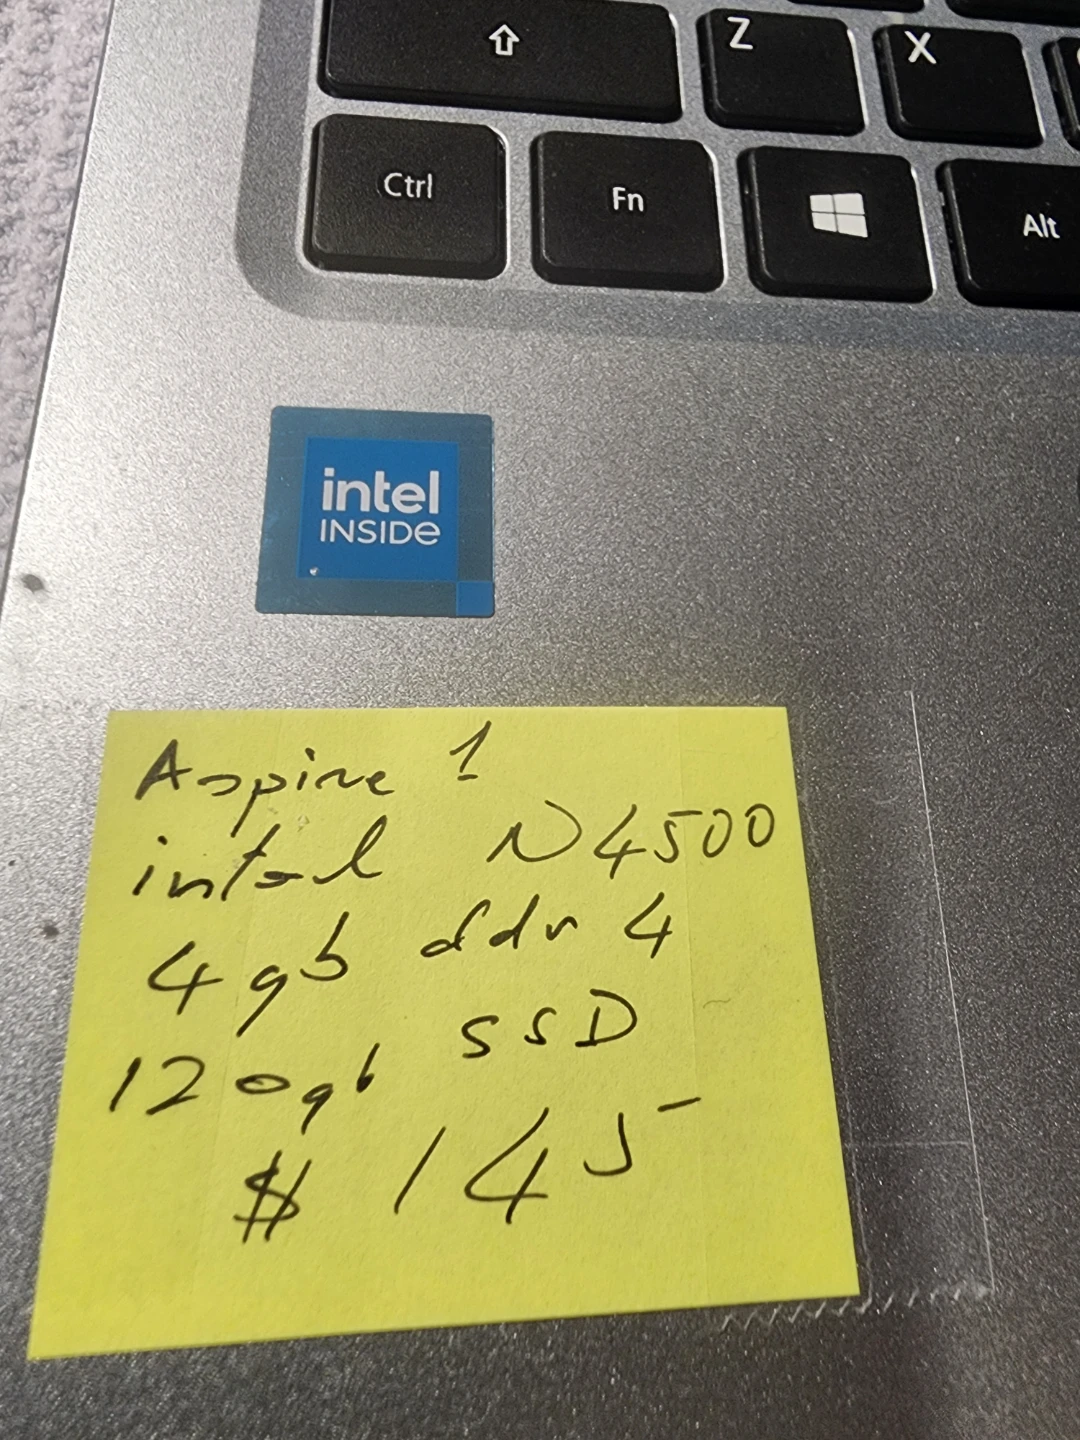 Z X
Ctrl Fn Alt
intel
INSIDE
Aspire 1
intel N4500
4gb ddr 4
120gb SSD
$ 145